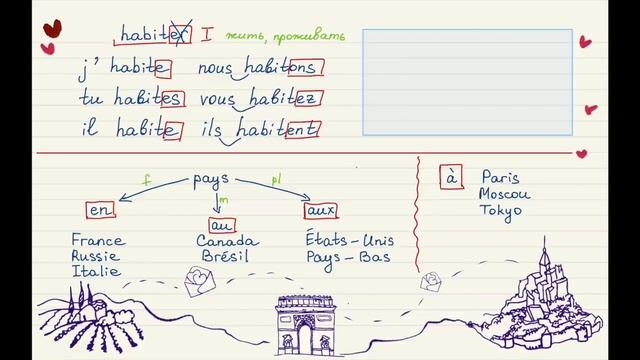 habiter I жить, проживать
j' habite nous habitons
tu habites vous habitez
il habite ils habitent
f pays pl
m
en au aux
France Canada États-Unis
Russie Brésil Pays-Bas
Italie
à Paris
Moscou
Tokyo